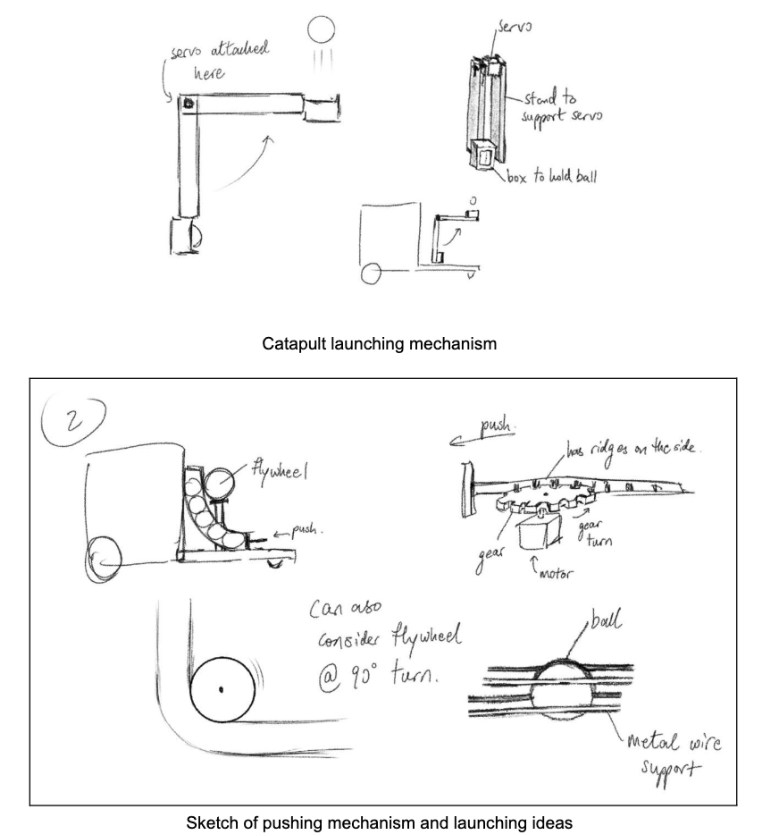 servo attached
here
servo
stand to
support servo
box to hold ball
Catapult launching mechanism
2
flywheel
push.
push.
has ridges on the side.
gear
gear
turn
motor
Can also
consider flywheel
@ 90° turn.
ball
metal wire
support
Sketch of pushing mechanism and launching ideas